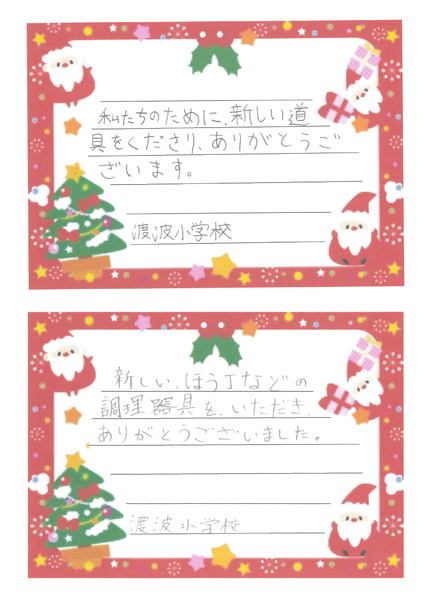 私たちのために、新しい道
具をくださり、ありがとうご
ざいます。
渡波小学校
新しい、ほう丁などの
調理器具を、いただき、
ありがとうございました。
渡波小学校